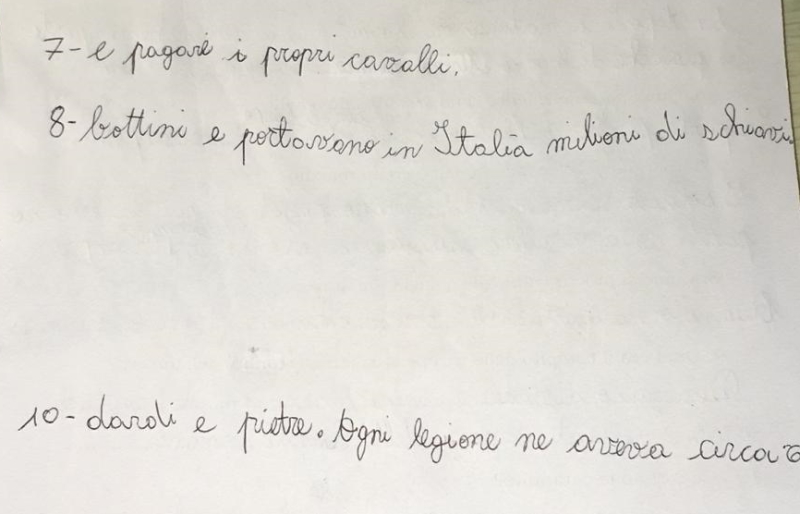 7- e pagare i propri cavalli.
8- bottini e portavano in Italia milioni di schiavi.
10- dardi e pietre. Ogni legione ne aveva circa